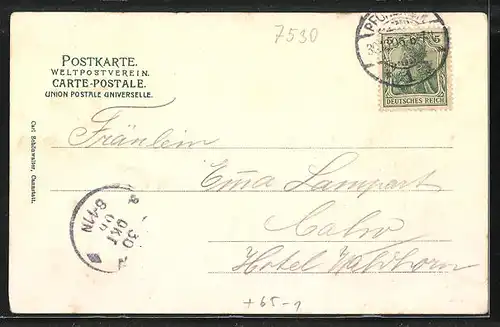 7530
POSTKARTE.
WELTPOSTVEREIN.
CARTE-POSTALE.
UNION POSTALE UNIVERSELLE.
DEUTSCHES REICH
Fräulein
Emma Lampart
Calw
Hotel Waldhorn
Carl Schönwalter, Cannstatt.
30
OKT
8-11N
+65-1